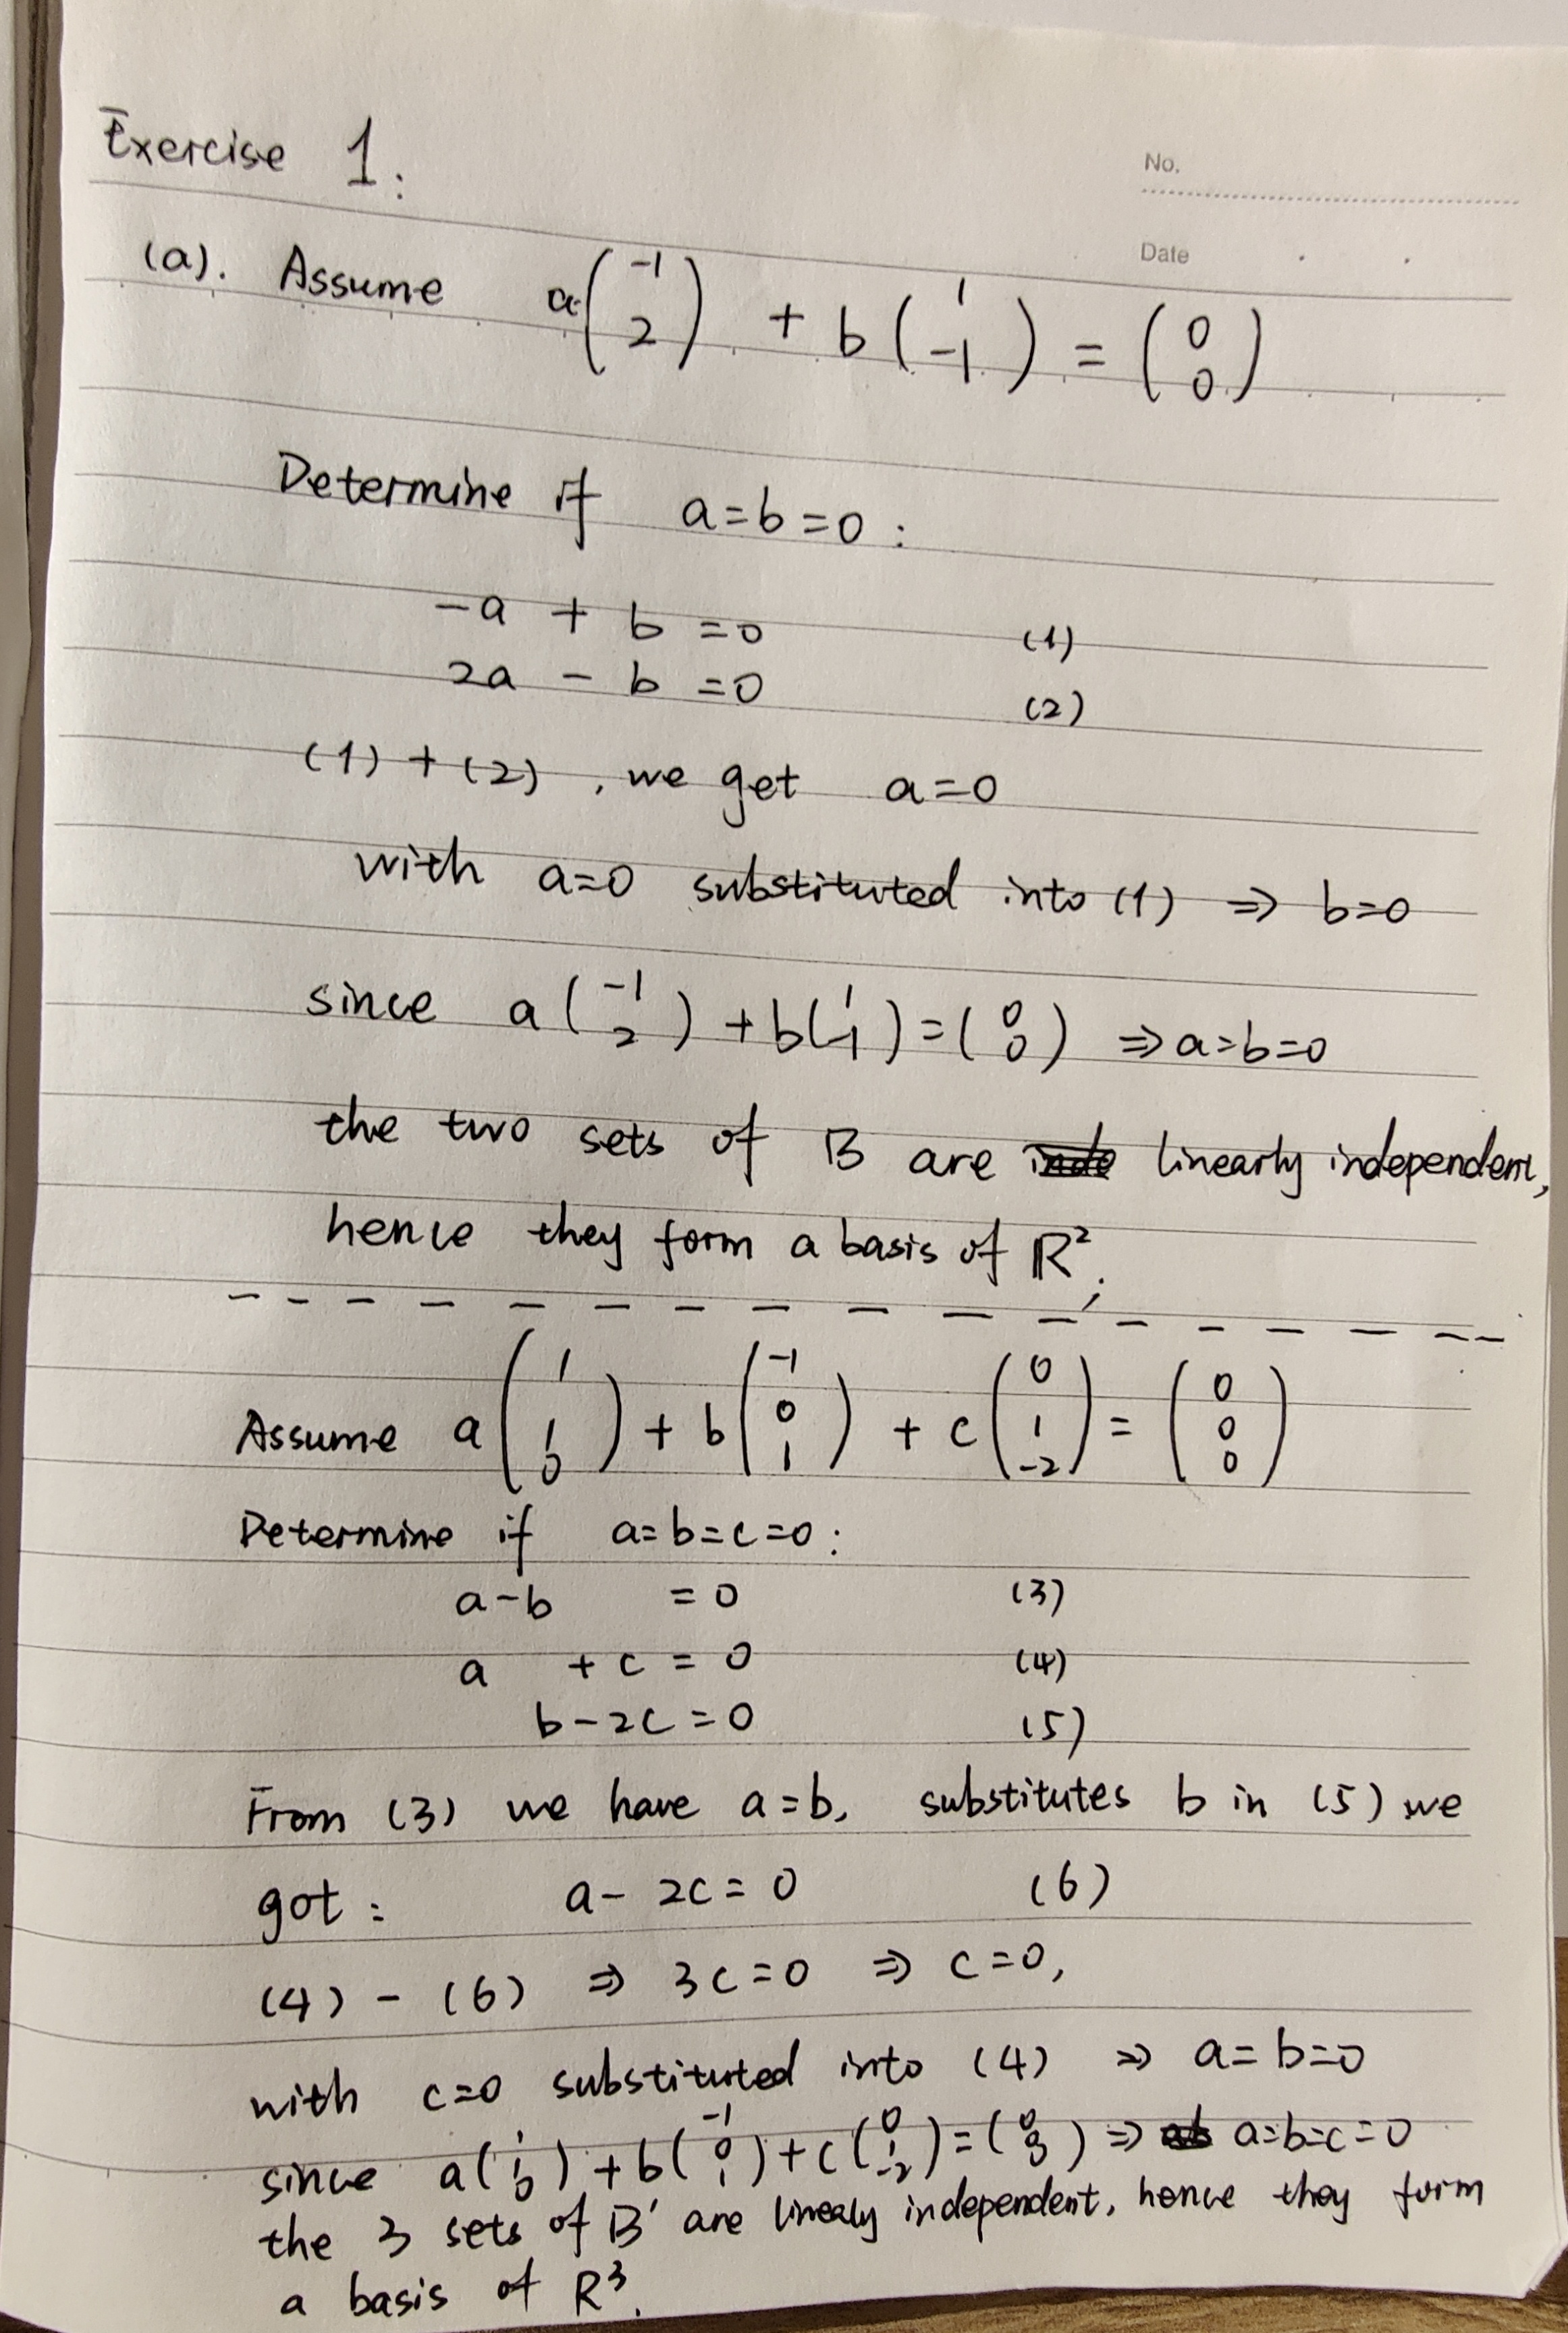 Exercise 1:
No.
Date
(a). Assume a(-1 2) + b(1 -1) = (0 0)
Determine if a=b=0:
-a + b =0 (1)
2a - b =0 (2)
(1)+(2), we get a=0
with a=0 substituted into (1) ⇒ b=0
since a(-1 2)+b(1 -1)=(0 0) ⇒ a=b=0
the two sets of B are linearly independent,
hence they form a basis of ℝ².
Assume a(1 1 0) + b(-1 0 1) + c(0 1 -2) = (0 0 0)
Determine if a=b=c=0:
a-b = 0 (3)
a + c = 0 (4)
b-2c=0 (5)
From (3) we have a=b, substitutes b in (5) we
got: a- 2c= 0 (6)
(4) - (6) ⇒ 3c=0 ⇒ c=0,
with c=0 substituted into (4) ⇒ a=b=0
since a(1 1 0)+b(-1 0 1)+c(0 1 -2)=(0 0 0) ⇒ a=b=c=0
the 3 sets of B' are linearly independent, hence they form
a basis of R³.